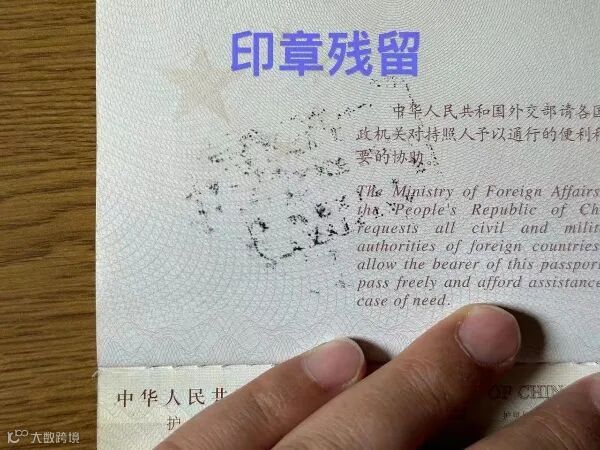 印章残留
中华人民共和国外交部请各国
政机关对持照人予以通行的便利和
要的协助。
The Ministry of Foreign Affairs
the People's Republic of Chi
requests all civil and milit
authorities of foreign countries
allow the bearer of this passport
pass freely and afford assistance
case of need.
中华人民共
OF CHIN
护
大数跨境